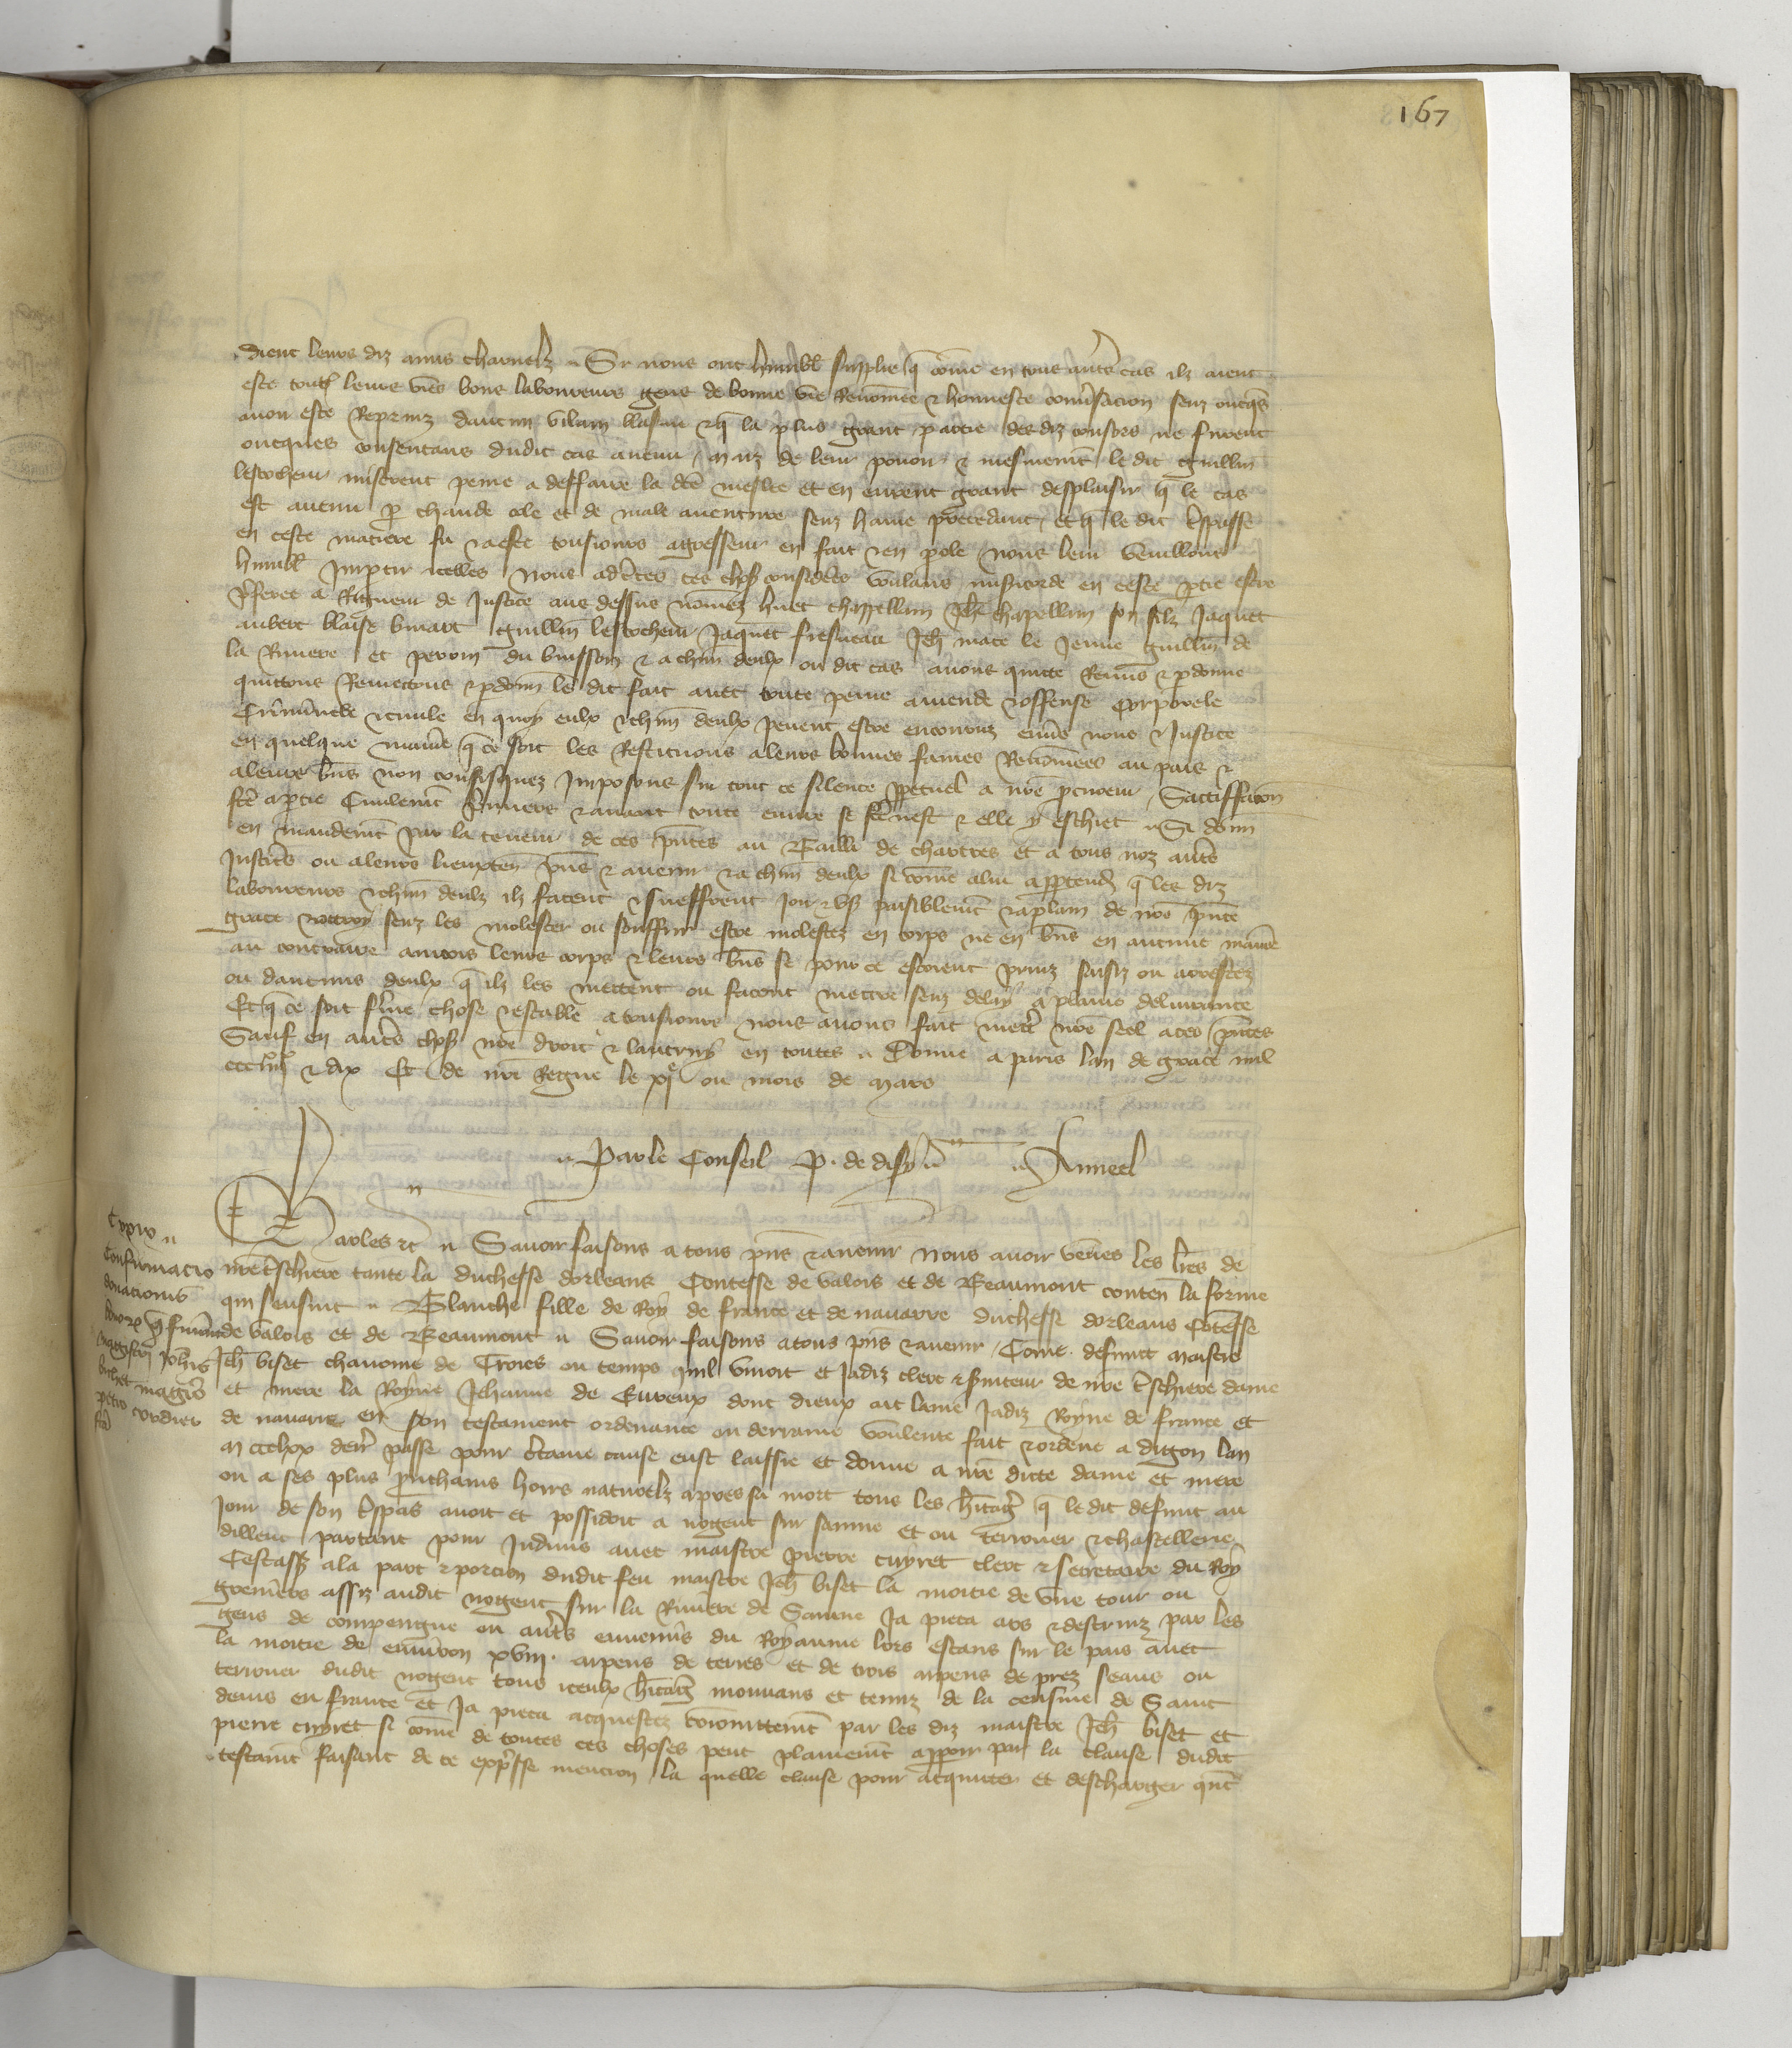 167
dient leurs diz amis charnelz. Si nous ont humbl supplie q come en tous autres cas ilz aient
este toutes leurs vies bons laboureurs gens de bonne vie Renomee & honneste conversacion senz oncqs
avoir este Reprinz daucun vilain blasme & q la plus grant partie des diz consors ne furent
oncques consentans dudit cas avenu, maiz de leur povoir & mesmement le dit Guillm
lescocheur misrent peine a deffaire la dce meslee et en eurent grant desplaisir q le cas
est avenu p chaude cole et de male aventure senz haine precedant, et q le dit trespasse
en ceste matiere fu & a este tousiours agresseur en fait & en parole nous leur vueillons
humbl Impartir icelles Nous adcertes ces choses considerees voulans misericorde en ceste partie estre
preferee a Rigueur de Justice aus dessus nommez huet chappellain Jeh chapellain son filz Jaquet
aubert blaise buiart Guillm lescocheur Jaquet fresneau Jeh mace le Jeune Guillm de
la Riviere et perrin du buisson & a chun deulx ou dit cas avons quicte Remis & pdonne
quittons Remectons & pdonn le dit fait avec toute peine amende & offense Corporele
Criminele & civile en quoy eulx & chun deulx pevent estre encouruz envers nous & Justice
en quelque maniere q ce soit les Restituons a leurs bonnes fames Renommees au pais &
a leurs biens non confisquez Imposons sur tout ce silence ppetuel a nre procureur, Sattiffacion
fce a partie Civilement premiere & avant toute euvre se fce nest & elle y eschiet. Si donn
en mandement par la teneur de ces pntes au Bailli de chartres et a tous noz autres
Justiciers ou a leurs lieuxten pns & avenir & a chun deulx si come a lui appartendra q les diz
laboureurs & chun deulx ilz facent & sueffrent joir & user paisiblement & a plain de nre pnte
grace & ottroy senz les molester ou souffrir estre molestez en corps ne en biens en aucune maniere
au contraire aincois leurs corps & leurs biens se pour ce estoient prinz saisiz ou arrestez
ou daucuns deulx q ilz les mettent ou facent mettre senz delay a plaine delivrance
Et q ce soit ferme chose & estable a tousiours nous avons fait mettre nre seel a ces pntes
Sauf en autres choses nre droit & lautruy en toutes. Donne a paris lan de grace mil
ccc iiiixx & dix Et de nre Regne le xie ou mois de mars
Par le Conseil P. de disy. Auneel
Charles &c Savoir faisons a tous pns & avenir Nous avoir veues les lres de
nre treschiere tante la duchesse dorleans Contesse de valois et de Beaumont conten la forme
qui sensuit. Blanche fille de Roy de france et de navarre duchesse dorleans Contesse
de valois et de Beaumont. Savoir faisons a tous pns & avenir, Come defunct maistre
Jeh biset chanoine de Troies ou temps quil vivoit et jadiz clerc & serviteur de nre treschiere dame
et mere la Royne Jehanne de Evreux dont dieux ait lame jadiz Royne de france et
de navarre en son testament ordenance ou derraine voulente fait & ordene a digon lan
m ccclxx derr passe pour certaine cause eust laissie et donne a nre dicte dame et mere
ou a ses plus prochains hoirs naturelz apres sa mort tous les heritages q le dit defunt au
jour de son trespas avoit et possidoit a nogent sur sanne et ou terrouer & chastellerie
dillenc partant pour Indivis avec maistre pierre cuyret clerc & secretaire du Roy
Cestass a la part & porcion dudit feu maistre Jeh biset la moitie de une tour ou
greniers assiz audit nogent sur la Riviere de Sanne Ja pieca ars & destruiz par les
gens de compengne ou autres ennemis du Royaume lors estans sur le pais avec
la moitie de environ xviii. arpens de terres et de trois arpens de prez seans ou
terrouer dudit nogent tous iceulx heritages mouvans et tenuz de la censive de Saint
denis en france et Ja pieca acquestez conionttement par les diz maistre Jeh biset et
pierre cuyret si come de toutes ces choses peut plainement apparoir par la clause dudit
testament faisant de ce expresse mencion, la quelle clause pour acquiter et descharger quant
Confirmacio
donacionis
magistri Johis
bichet magistro
petro